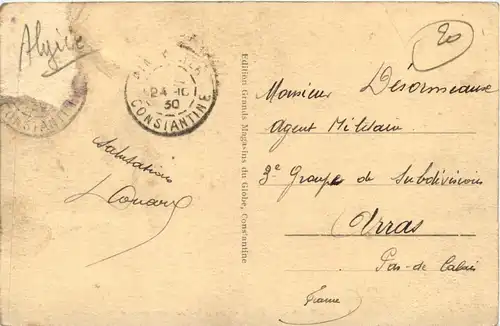 Algérie
20
24-10
30
CONSTANTINE
CONSTANTINE
Salutations
Edition Grands Magasins du Globe, Constantine
Monsieur Désormeaux
Agent Militaire
3e Groupe de Subdivisions
Arras
Pas-de-Calais
France